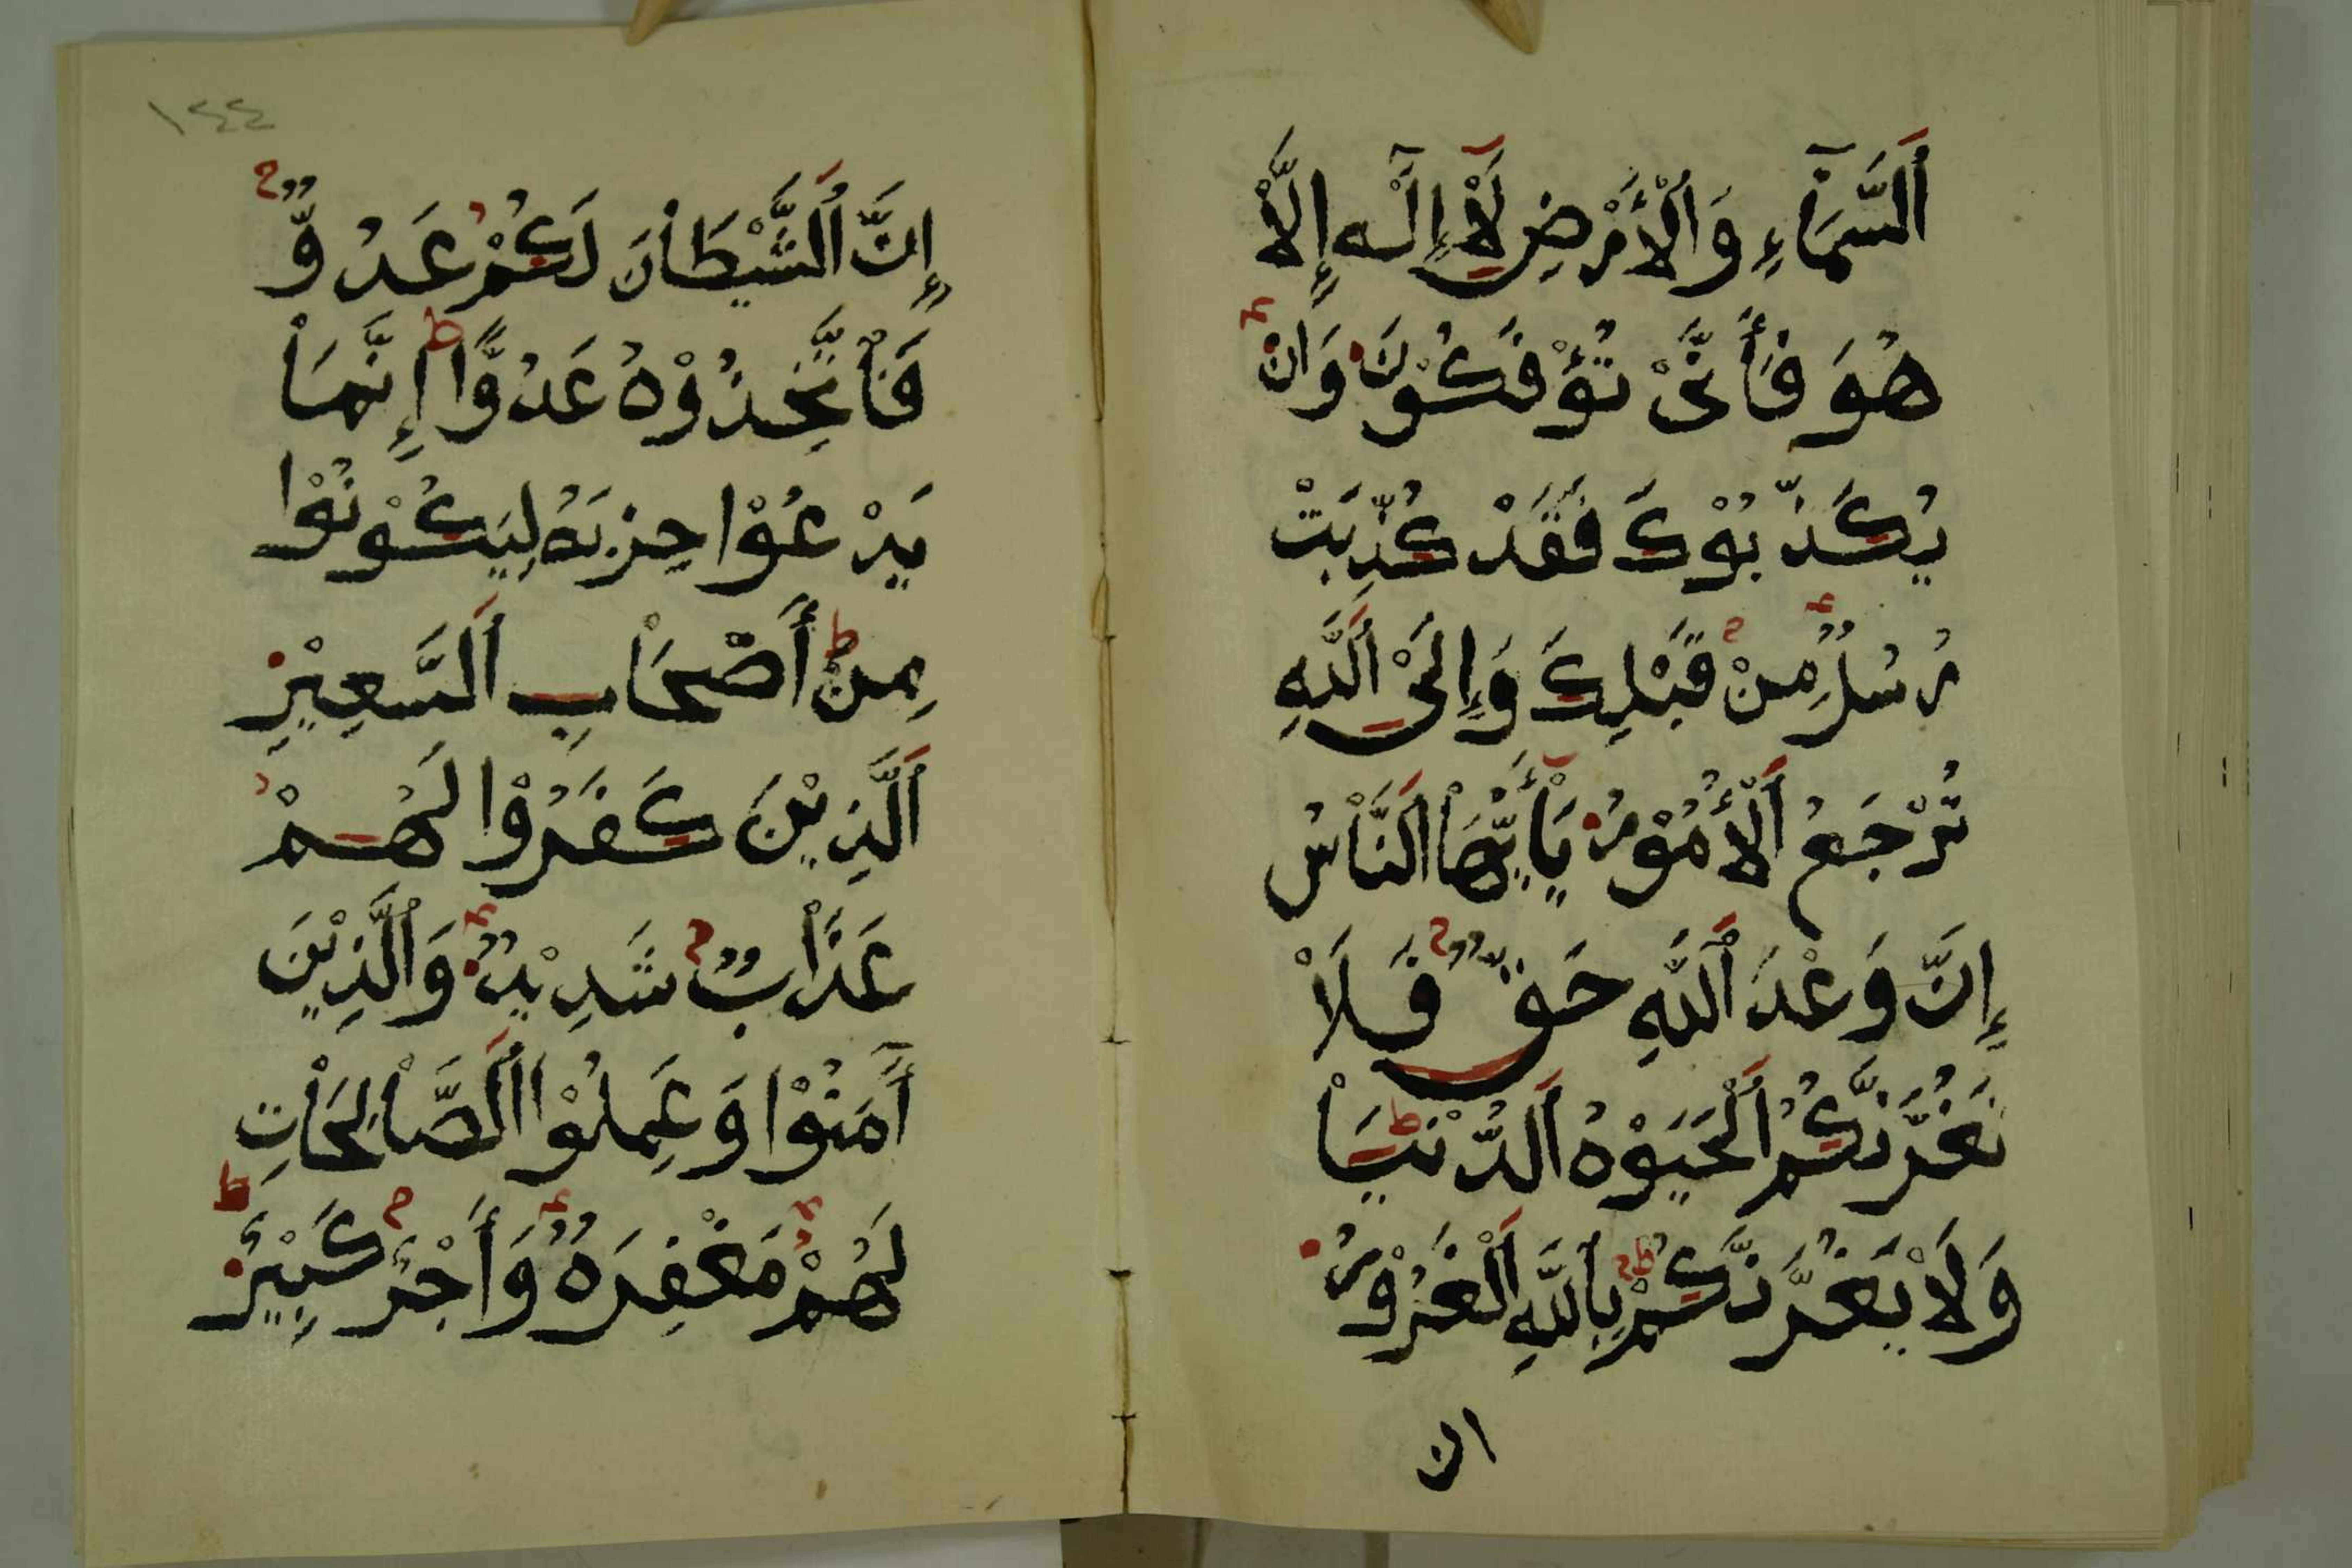 اَلسَّمَآءِ وَالْأَرْضِ لَآ إِلٰهَ إِلَّا
هُوَ فَأَنَّىْ تُؤْفَكُوْنَ وَاِنْ
يُكَذِّبُوْكَ فَقَدْ كُذِّبَتْ
رُسُلٌ مِنْ قَبْلِكَ وَإِلَىْ اَللَّهِ
تُرْجَعُ اَلْأُمُوْرُ يَاْأَيُّهَاْ اَلنَّاْسُ
إِنَّ وَعْدَ اَللَّهِ حَقٌّ فَلَاْ
تَغُرَّنَّكُمُ اَلْحَيَوْةُ اَلدُّنْيَاْ
وَلَاْ يَغُرَّنَّكُمْ بِاللَّهِ اَلْغَرُوْرُ
ان
١٤٤
إِنَّ اَلشَّيْطَاْنَ لَكُمْ عَدُوٌّ
فَاْتَّخِذُوْهُ عَدُوًّا إِنَّمَاْ
يَدْعُوْا حِزْبَهُ لِيَكُوْنُوْا
مِنْ أَصْحَاْبِ اَلسَّعِيْرِ
اَلَّذِيْنَ كَفَرُوْا لَهُمْ
عَذَاْبٌ شَدِيْدٌ وَاَلَّذِيْنَ
أٓمَنُوْا وَعَمِلُوْا اَلصَّاْلِحَاْتِ
لَهُمْ مَغْفِرَةٌ وَأَجْرٌ كَبِيْرٌ